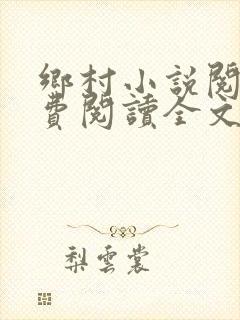 鄉村小説閱
費閱讀全文
梨雲裳